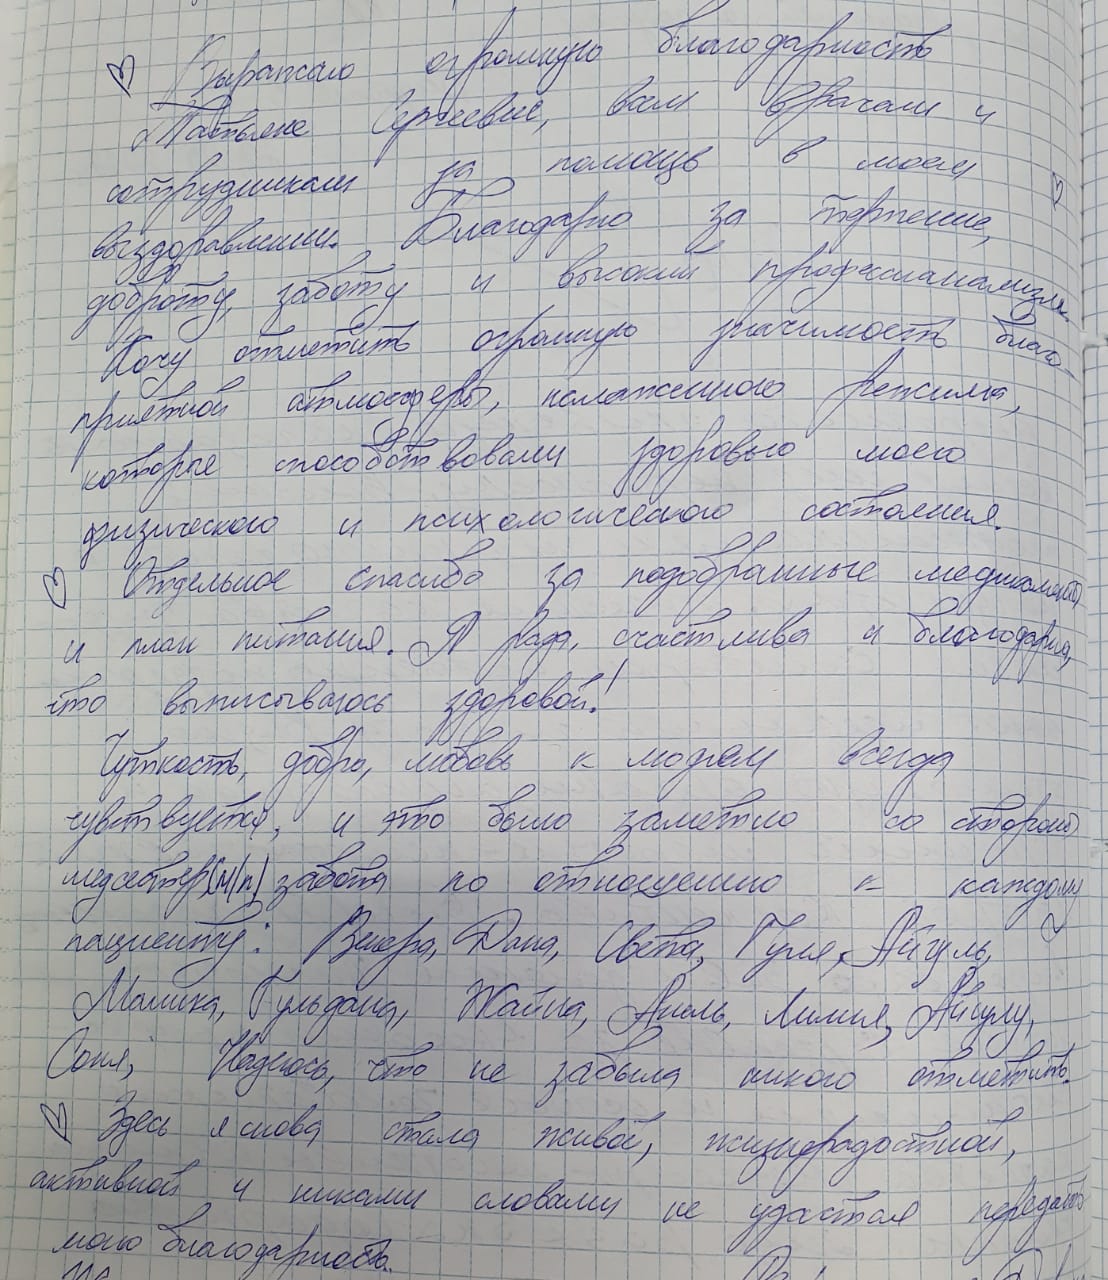 Выражаю огромную благодарность
Татьяне Сергеевне, всем врачам и
сотрудникам за помощь в моем
выздоравлении. Благодарю за терпение,
доброту, заботу и высокий профессианализм.
Хочу отметить огромную значимость благо-
приятной атмосферы, налаженного режима,
которые способствовали здоровью моего
физического и психологического состояния.
Отдельное спасибо за подобранные медикаменты
и план питания. Я рада, счастлива и благодарна,
что выписываюсь здоровой!
Чуткость, добро, любовь к людям всегда
чувствуется, и это было заметно со стороны
медсестер забота по отношению к каждому
пациенту: Венера, Дана, Света, Гуля, Айгуль,
Малика, Гульдана, Жайна, Асель, Лилия, Айгулу,
Соня; Надеюсь, что не забыла никого отметить.
Здесь я снова стала живой, жизнерадостной,
активной и никами словами не удастся передать
мою благодарность.